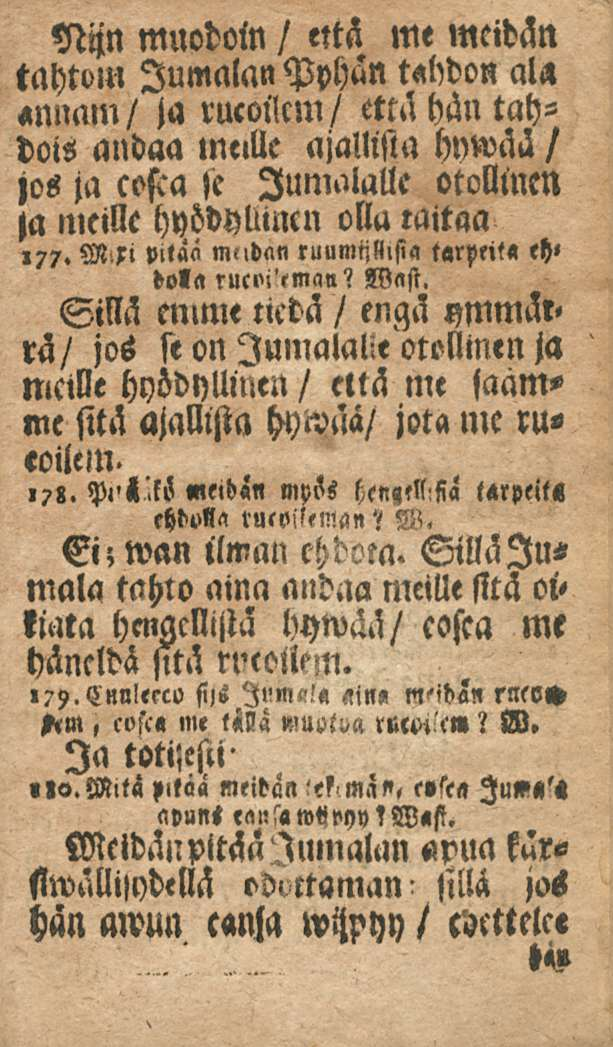 Nijn muodoin / että me meidän
tahtom Jumalan Pyhän tahdon ala
annam / ja rucoilem / että hän tah⸗
dois andaa meille ajallista hywää /
jos ja cosca se Jumalalle otollinen
ja meille hyödyllinen olla taitaa
177. Mixi pitää meidän ruumijllisia tarpeita eh⸗
dolla rucoileman? Wast.
Sillä emme tiedä / engä ymmär⸗
rä / jos se on Jumalalle otollinen ja
meille hyödyllinen / että me saam⸗
me sitä ajallista hywää / jota me ru⸗
coilem.
178. Pitääkö meidän myös hengellisiä tarpeita
ehdolla rucoileman? W.
Ei; wan ilman ehdota. Sillä Ju⸗
mala tahto aina andaa meille sitä oi⸗
kiata hengellistä hywää / cosca me
häneldä sitä rucoilem.
179. Cuulecco sijs Jumala aina meidän rucou⸗
xem, cosca me tällä muotoa rucoilem? W.
Ja totisesti
180. Mitä pitää meidän tekemän, cosca Jumala
apuns cansa wijpyy? Wast.
Meidän pitää Jumalan apua kär⸗
siwällisydellä odottaman: sillä jos
hän awun cansa wijpyy / coettelee
hän